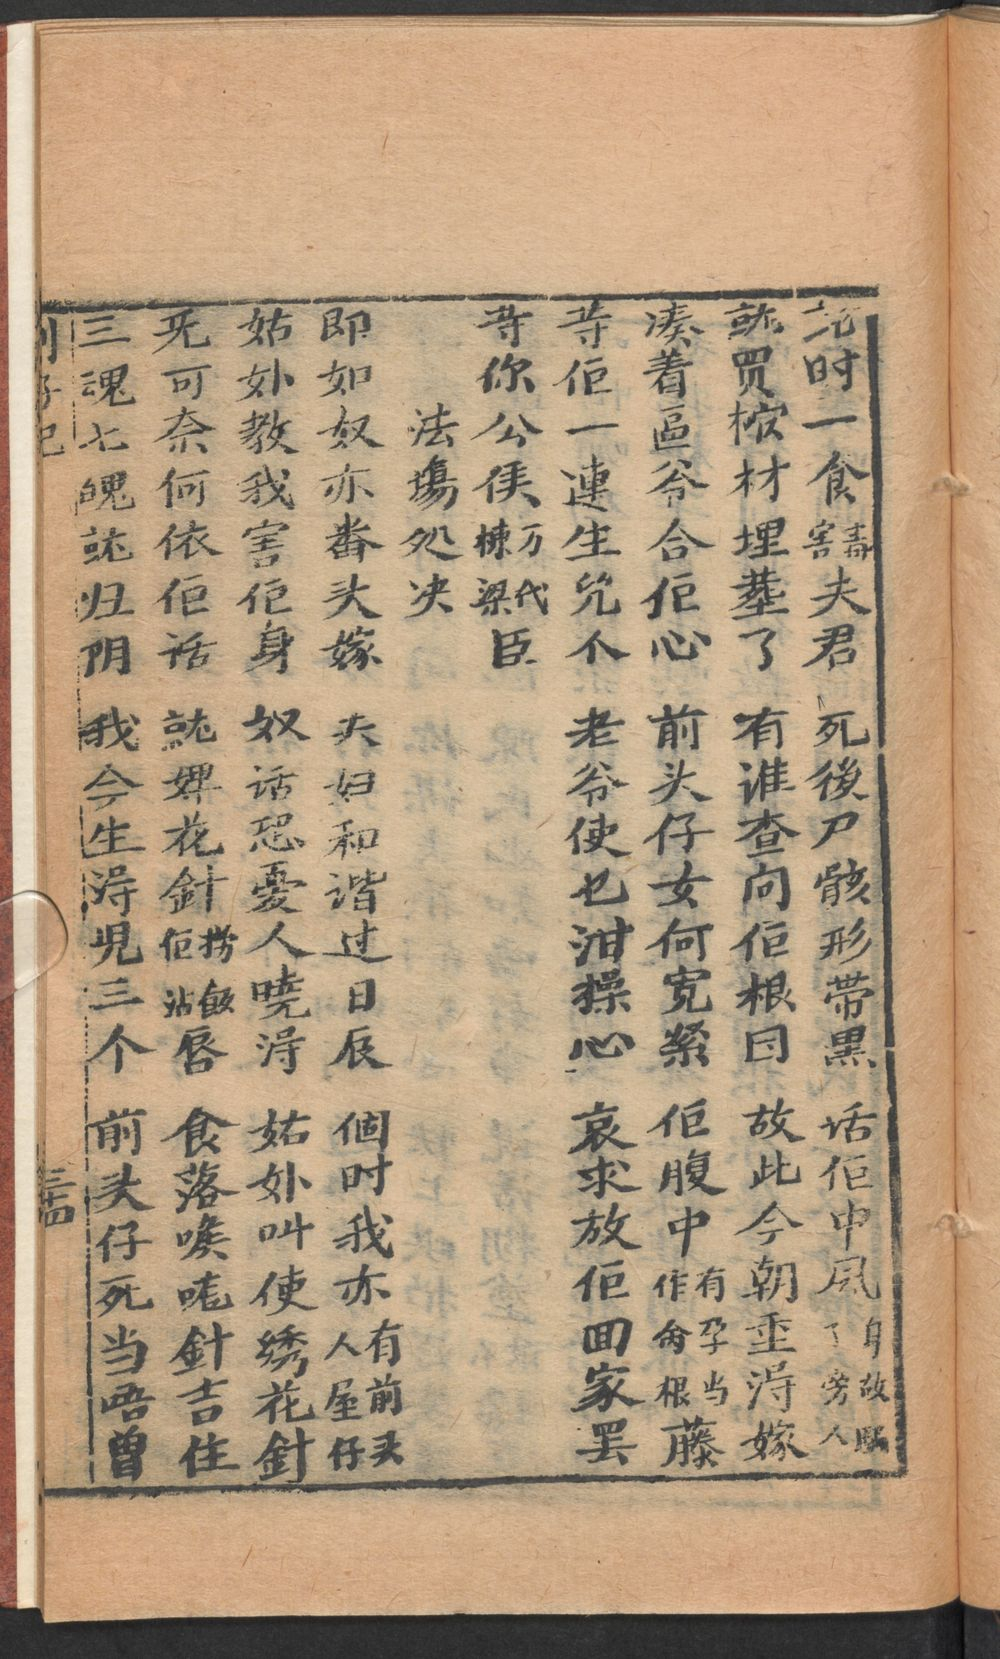 时一食毒害夫君　死後尸骸形带黒　话佢中风身故𭥍了旁人
就買棺材埋塟了　有谁查问佢根因　故此今朝重淂嫁
凑着區爷合佢心　前头仔女何宽紧　佢腹中有孕当作禽根藤
等佢一連生児个　老爷使乜泔操心　哀求放佢回家罢
等你公侯万代棟梁臣
法塲処决
即如奴亦番头嫁　夫妇和谐过日辰　個时我亦有前头人屋仔
姑外教我害佢身　奴话恐憂人曉淂　姑外叫使绣花針
旡可奈何依佢话　就婢花針捞飯佢沾唇　食落喉嚨針吉住
三魂七魄就归阴　我今生淂児三个　前头仔死当唔曾
三十四